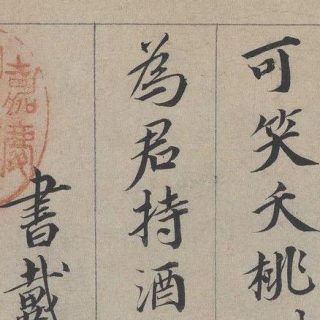 可笑夭桃
為君持酒
書戴
嘉慶